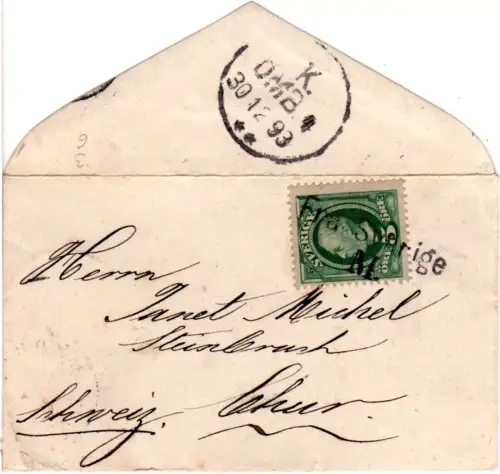 K.
OMB. 4
30 12 93
63
SVERIGE
Fra Sverige
M.
ÖRE
Herrn
Janet Michel
Steinbruch
Schweiz. Chur.